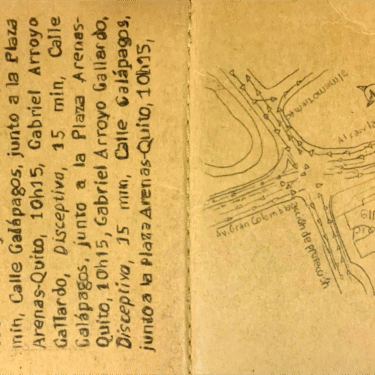 min, Calle Galápagos, junto a la Plaza
Arenas-Quito, 10h15, Gabriel Arroyo
Gallardo, Disceptiva, 15 min, Calle
Galápagos, junto a la Plaza Arenas-
Quito, 10h15, Gabriel Arroyo Gallardo,
Disceptiva, 15 min, Calle Galápagos,
junto a la Plaza Arenas-Quito, 10h15,
Av. Gran Colombia